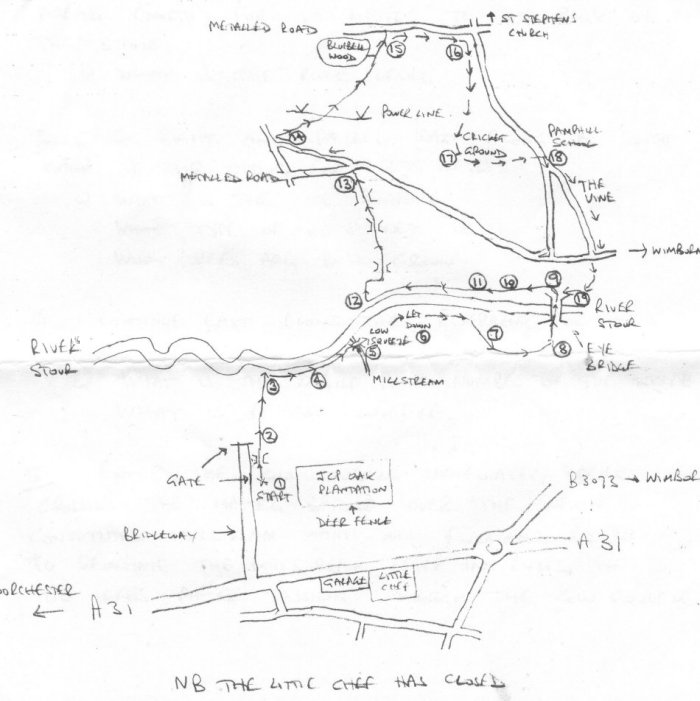 ↑ ST STEPHENS
CHURCH
METALLED ROAD
BLUEBELL
WOOD
15
16
POWER LINE
14
CRICKET
GROUND
17
PAMPHILL
SCHOOL
18
METALLED ROAD
13
THE
VINE
→ WIMBORN
12
11
10
9
19
RIVER
STOUR
LET
DOWN
6
LOW
SQUEEZE
5
7
8
EYE
BRIDGE
RIVER
STOUR
MILLSTREAM
3
4
2
GATE
1
START
JCP OAK
PLANTATION
DEER FENCE
B3073 → WIMBOR
BRIDLEWAY
A31
GARAGE
LITTLE
CHEF
DORCHESTER
← A31
NB THE LITTLE CHEF HAS CLOSED